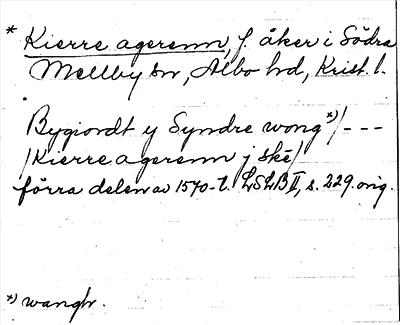 * Kierre agerenn, f. åker i Södra
Mellby sn, Albo hd, Krist. l.
Bygiordt y Syndre wong *)/ - - -
/Kierre agerenn j skē/
förra delen av 1570-t. LSLB II, s. 229. orig.
*) wangh.